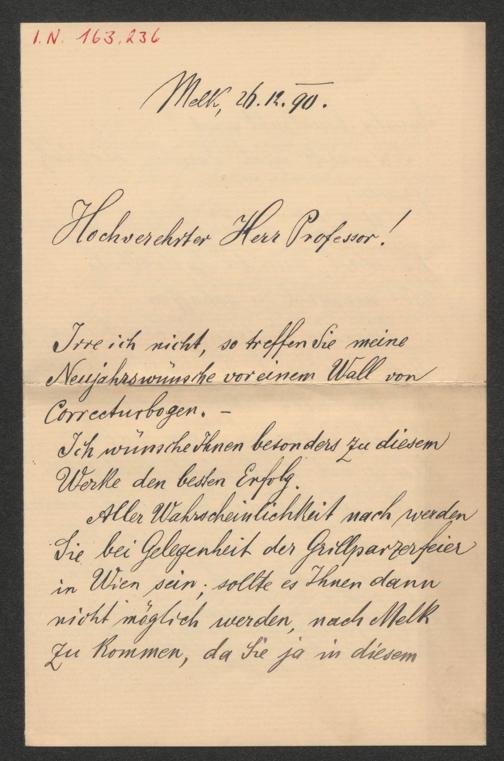 I.N. 163.236
Melk, 26.12.90.
Hochverehrter Herr Professor!
Irre ich nicht, so treffen Sie meine
Neujahrswünsche vor einem Wall von
Correcturbogen. –
Ich wünsche Ihnen besonders zu diesem
Werke den besten Erfolg.
Aller Wahrscheinlichkeit nach werden
Sie bei Gelegenheit der Grillparzerfeier
in Wien sein; sollte es Ihnen dann
nicht möglich werden, nach Melk
zu kommen, da Sie ja in diesem